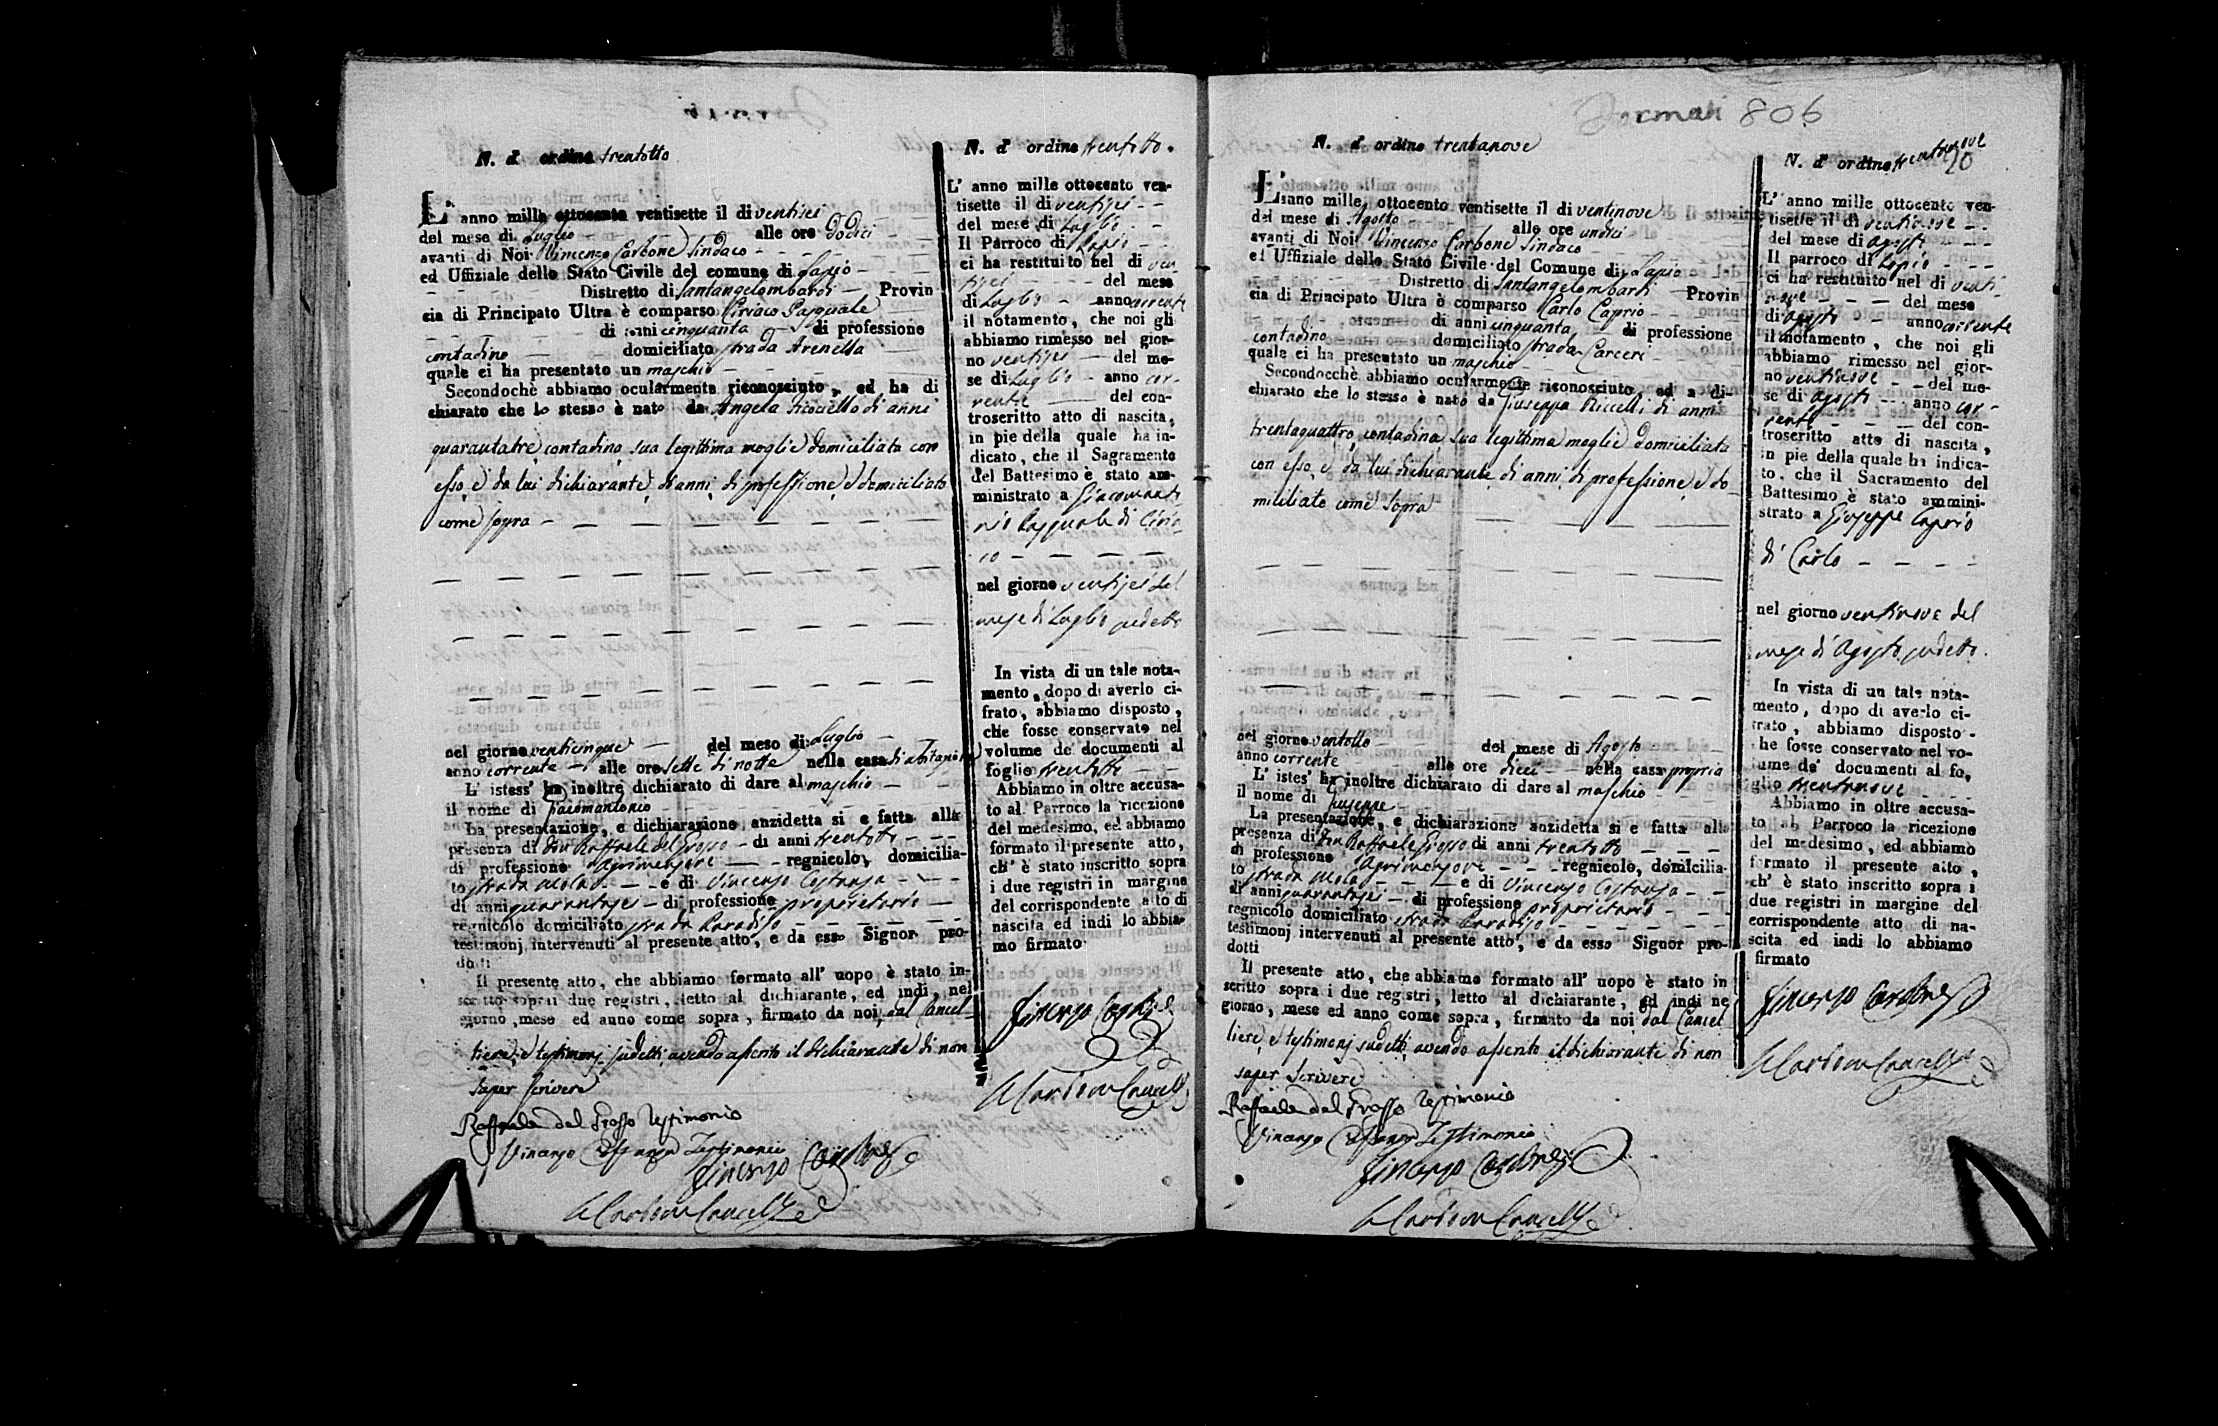 N. d' ordine trentotto
L' anno mille ottocento ventisette il di ventisei
del mese di Luglio alle ore dodici
avanti di Noi Vincenzo Carbone Sindaco
ed Uffiziale dello Stato Civile del comune di Lapio
Distretto di Santangelombardi Provin
cia di Principato Ultra è comparso Ciriaco Pasquale
di anni cinquanta di professione
contadino domiciliato strada Arenella
quale ci ha presentato un maschio
Secondochè abbiamo ocularmente riconosciuto, ed ha di
chiarato che lo stesso è nato da Angela di anni
quarantatre contadina sua legittima moglie domiciliata con
esso, e da lui dichiarante, di anni, di professione, e domiciliato
come sopra
nel giorno venticinque del mese di Luglio
anno corrente alle ore sette di notte nella casa di abitazione
L' istess' ha inoltre dichiarato di dare al maschio
il nome di Giacomantonio
La presentazione, e dichiarazione anzidetta si e fatta alla
presenza di Don Raffaele del Grosso di anni trentotto
di professione Agrimensore regnicolo, domicilia-
to strada Mola e di Vincenzo Costanza
di anni quarantasei di professione proprietario
regnicolo domiciliato strada Paradiso
testimonj intervenuti al presente atto, e da esso Signor pro-
dotti
Il presente atto, che abbiamo formato all' uopo è stato in-
scritto sopra i due registri, letto al dichiarante, ed indi nel
giorno, mese ed anno come sopra, firmato da noi, dal Cancel-
liere, e testimonj sudetti, avendo asserito il dichiarante di non
saper scrivere
Raffaele del Grosso Testimonio
Vincenzo Costanza Testimonio
Vincenzo Carbone
N. d' ordine trentotto.
L' anno mille ottocento ven-
tisette il di ventisei
del mese di Luglio
Il Parroco di Lapio
ci ha restituito nel di ven
tisei del mese
di Luglio anno corrente
il notamento, che noi gli
abbiamo rimesso nel gior-
no ventisei del me-
se di Luglio anno cor-
rente del con-
troscritto atto di nascita,
in pie della quale ha in-
dicato, che il Sagramento
del Battesimo è stato am-
ministrato a Giacomanto
nio Pasquale di Ciria
co
nel giorno ventisei del
mese di Luglio sudetto
In vista di un tale nota-
mento, dopo di averlo ci-
frato, abbiamo disposto,
che fosse conservato nel
volume de' documenti al
foglio trentotto
Abbiamo in oltre accusa-
to al Parroco la ricezione
del medesimo, ed abbiamo
formato il presente atto,
ch' è stato inscritto sopra
i due registri in margine
del corrispondente atto di
nascita ed indi lo abbia-
mo firmato
Vincenzo Carbone
Dormali 806
N. d' ordine trentanove
L' anno mille ottocento ventisette il di ventinove
del mese di Agosto alle ore undici
avanti di Noi Vincenzo Carbone Sindaco
ed Uffiziale dello Stato Civile del Comune di Lapio
Distretto di Santangelombardi Provin
cia di Principato Ultra è comparso Carlo Caprio
di anni cinquanta di professione
contadino domiciliato strada Carcere
quale ci ha presentato un maschio
Secondocchè abbiamo ocularmente riconosciuto, ed a di-
chiarato che lo stesso è nato da Giuseppa Riccelli di anni
trentaquattro, contadina sua legittima moglie domiciliata
con esso, e da lui dichiarante, di anni, di professione, e do-
miciliato come sopra
nel giorno ventotto del mese di Agosto
anno corrente alle ore dieci nella casa propria
L' istes' ha inoltre dichiarato di dare al maschio
il nome di Giuseppe
La presentazione, e dichiarazione anzidetta si e fatta alla
presenza di Don Raffaele Grosso di anni trentotto
di professione Agrimensore regnicolo, domicilia-
to strada Mola e di Vincenzo Costanza
di anni quarantasei di professione proprietario
regnicolo domiciliato strada Paradiso
testimonj intervenuti al presente atto, e da esso Signor pro-
dotti
Il presente atto, che abbiamo formato all' uopo è stato in
scritto sopra i due registri, letto al dichiarante, ed indi ne
giorno, mese ed anno come sopra, firmato da noi dal Cancel
liere, e testimonj sudetti, avendo asserito il dichiarante di non
saper scrivere
Raffaele del Grosso Testimonio
Vincenzo Costanza Testimonio
Vincenzo Carbone
N. d' ordine trentanove
20
L' anno mille ottocento ven-
tisette il di ventinove
del mese di Agosto
Il parroco di Lapio
ci ha restituito nel di venti-
nove del mese
di Agosto anno corrente
il notamento, che noi gli
abbiamo rimesso nel gior-
no ventinove del me-
se di Agosto anno cor-
rente del con-
troscritto atto di nascita,
in pie della quale ha indica-
to, che il Sacramento del
Battesimo è stato ammini-
strato a Giuseppe Caprio
di Carlo
nel giorno ventinove del
mese di Agosto sudetto.
In vista di un tale nota-
mento, dopo di averlo ci-
frato, abbiamo disposto
che fosse conservato nel vo-
lume de' documenti al fo,
glio trentanove
Abbiamo in oltre accusa-
to al Parroco la ricezione
del medesimo, ed abbiamo
formato il presente atto,
ch' è stato inscritto sopra i
due registri in margine del
corrispondente atto di na-
scita ed indi lo abbiamo
firmato
Vincenzo Carbone